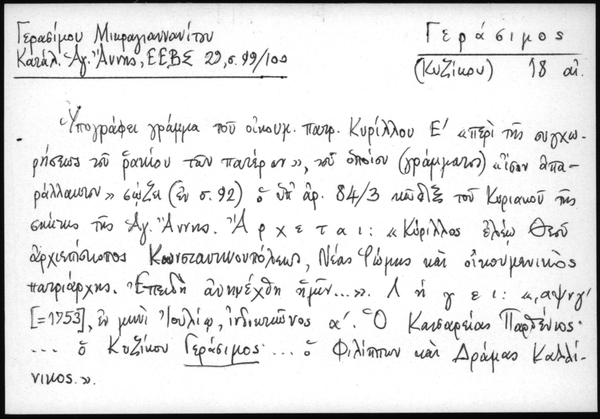 Γερασίμου Μικραγιαννανίτου
Κατάλ. Ἁγ. Ἄννης, ΕΕΒΣ 29, σ. 99/100
Γεράσιμος
(Κυζίκου) 18 αἰ.
Ὑπογράφει γράμμα τοῦ οἰκουμ. πατρ. Κυρίλλου Ε' «περὶ τῆς συγχω-
ρήσεως τοῦ βρακίου τῶν πατέρων», τοῦ ὁποίου (γράμματος) «ἴσον ἀπα-
ράλλακτον» σῴζει (ἐν σ. 92) ὁ ὑπ' ἀρ. 84/3 κῶδιξ τοῦ Κυριακοῦ τῆς
σκήτης τῆς Ἁγ. Ἄννης. Ἄρχεται: «Κύριλλος ἐλέῳ Θεοῦ
ἀρχιεπίσκοπος Κωνσταντινουπόλεως, Νέας Ῥώμης καὶ οἰκουμενικὸς
πατριάρχης. Ἐπειδὴ ἀνηνέχθη ἡμῖν...». Λήγει: «͵αψνγ'
[=1753], ἐν μηνὶ Ἰουλίῳ, ἰνδικτιῶνος α'. Ὁ Καισαρείας Παρθένιος·
... ὁ Κυζίκου Γεράσιμος· ... ὁ Φιλίππων καὶ Δράμας Καλλί-
νικος.».